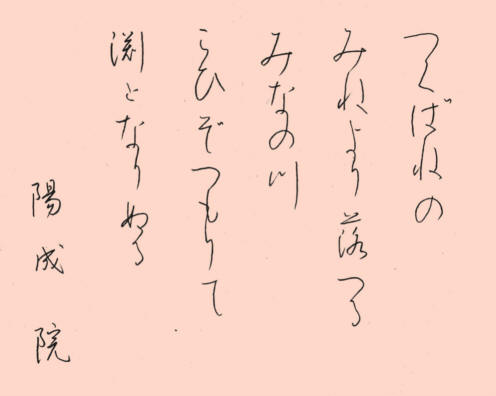 つくばねの
みねより落つる
みなの川
こひぞつもりて
淵となりぬる
陽成院